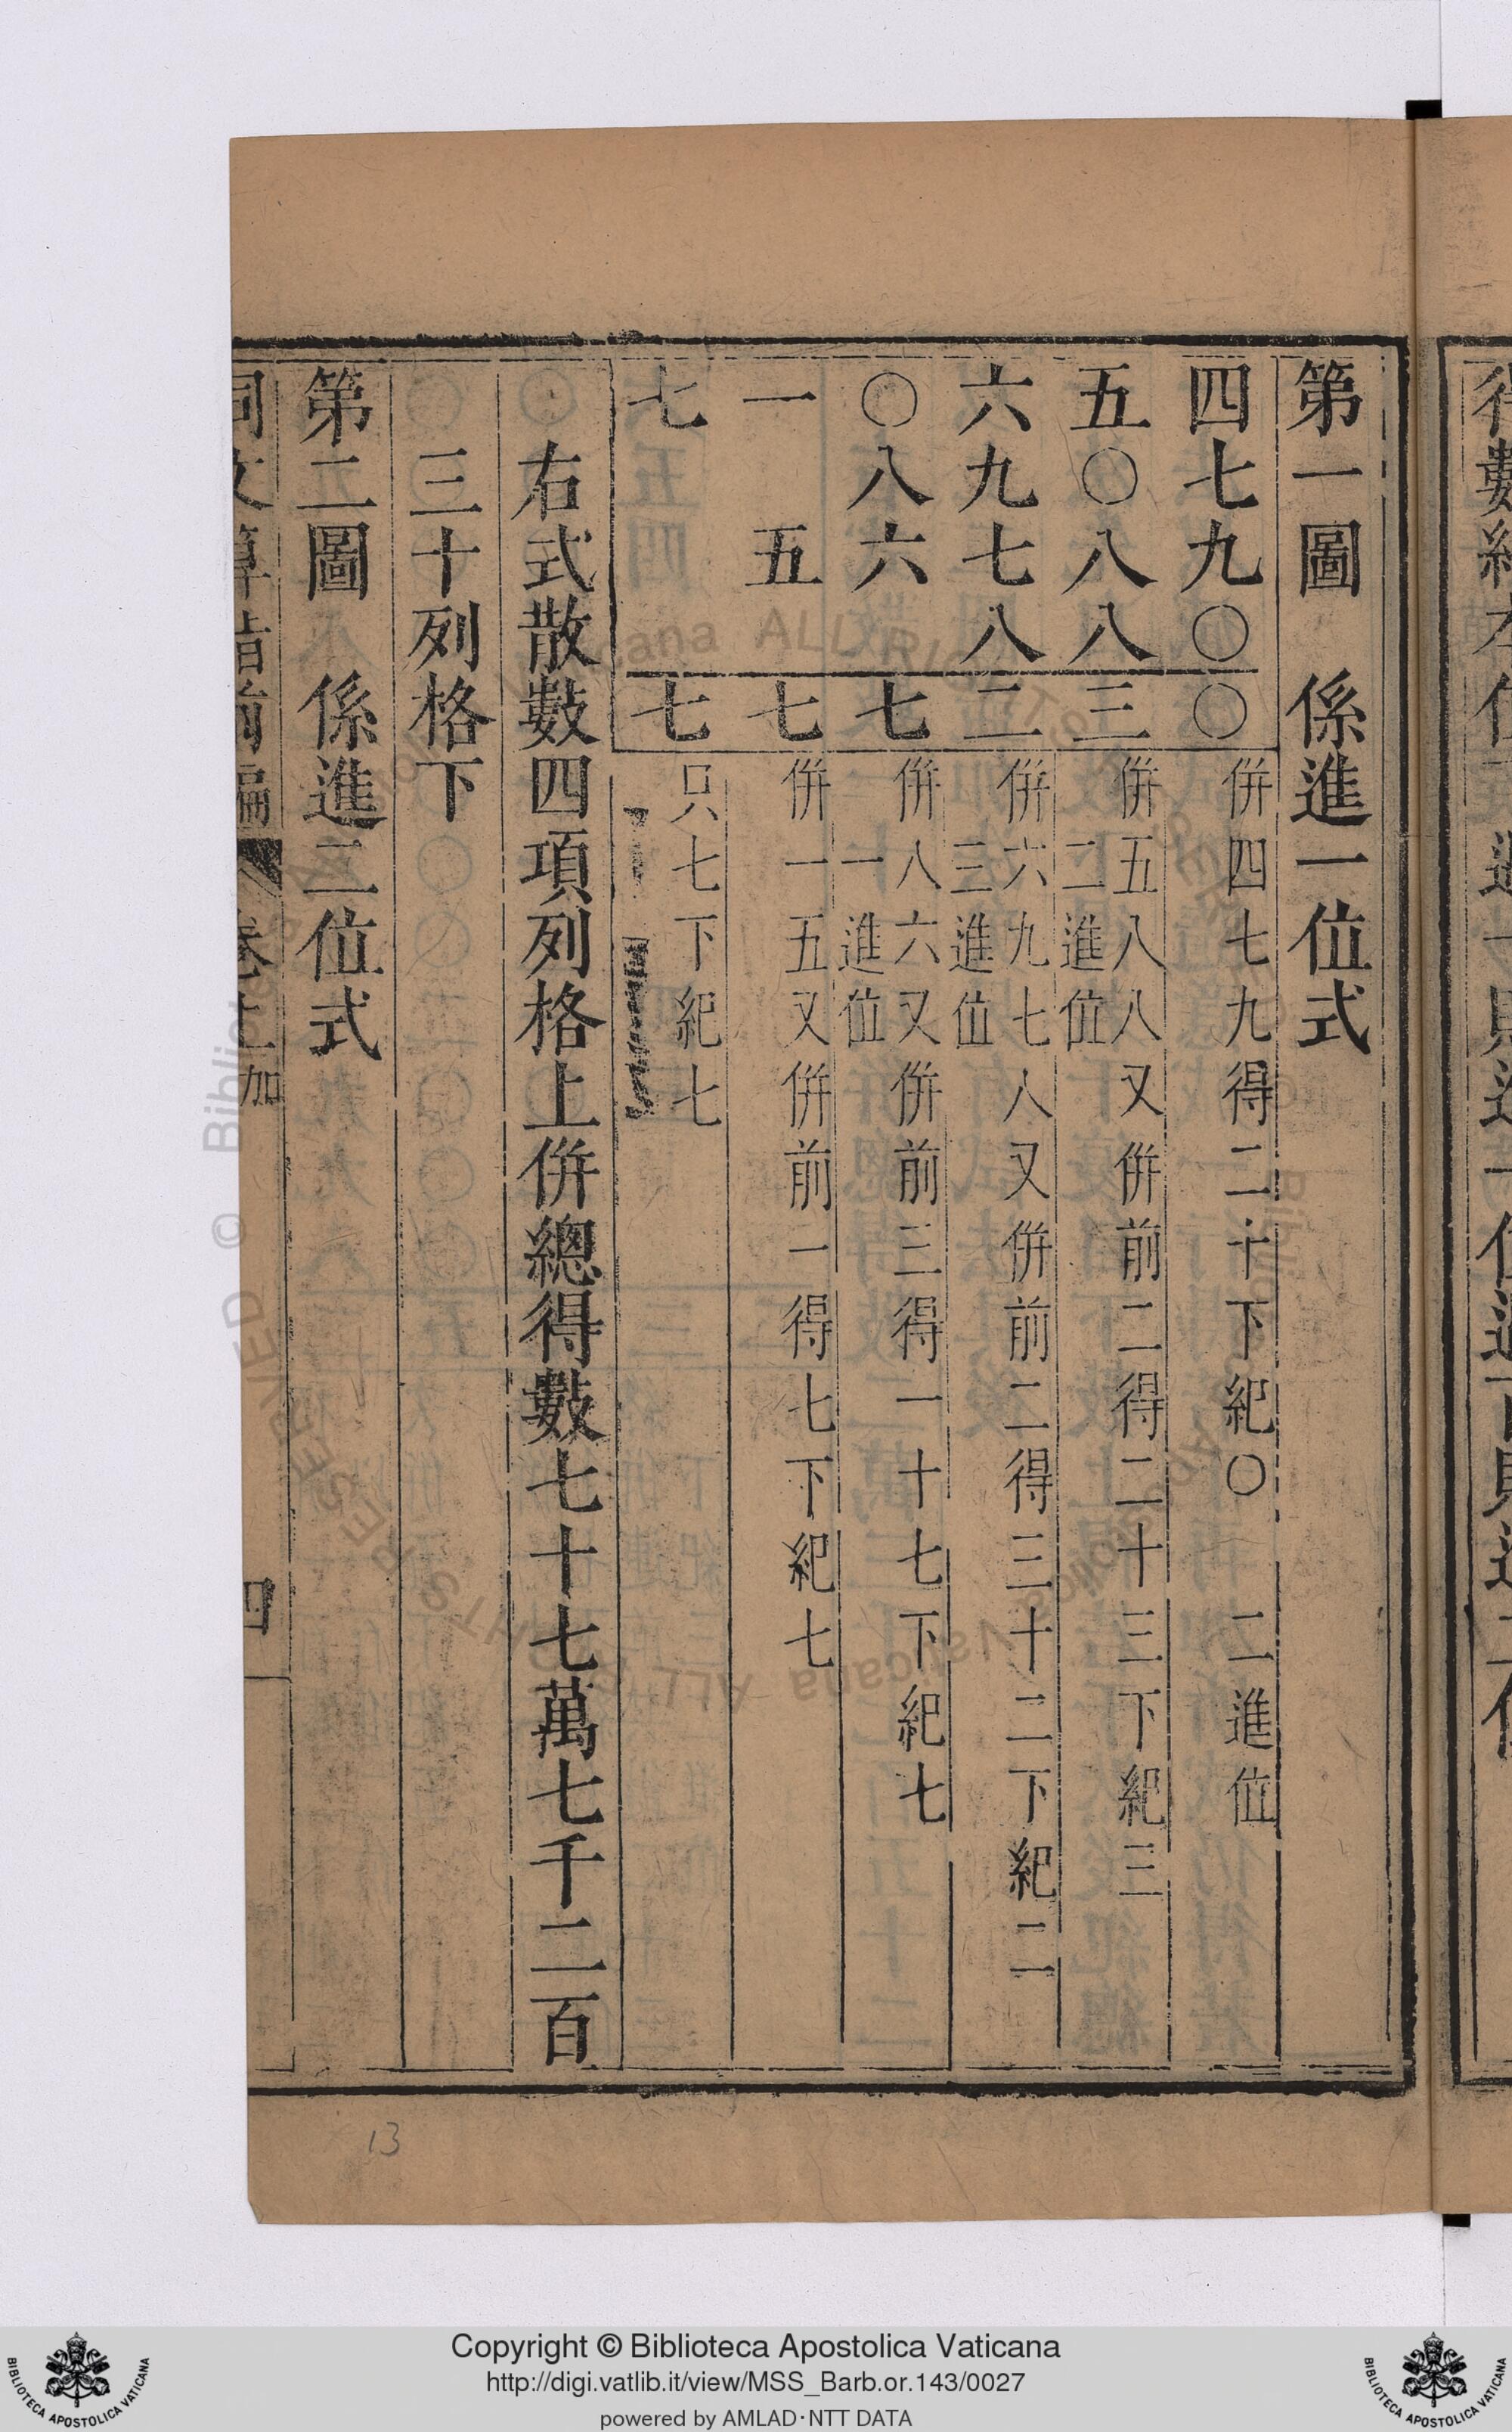 第一圖　係進一位式
四七九〇〇　併四七九得二十下紀〇　二進位
五〇八八三　併五八八又併前二得二十三下紀三
二進位
六九七八二　併六九七八又併前二得三十二下紀二
三進位
〇八六　七　併八六又併前三得一十七下紀七
一進位
一　五　七　併一五又併前一得七下紀七
七　　　七　只七下紀七
右式散數四項列格上併總得數七十七萬七千二百
三十列格下
第二圖　係進二位式
同文算指前編　卷上　加　四
13
Copyright © Biblioteca Apostolica Vaticana
http://digi.vatlib.it/view/MSS_Barb.or.143/0027
powered by AMLAD·NTT DATA
BIBLIOTECA APOSTOLICA VATICANA
BIBLIOTECA APOSTOLICA VATICANA